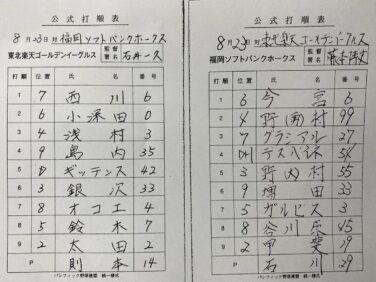 公式打順表
8月23日 対 福岡ソフトバンクホークス
東北楽天ゴールデンイーグルス 監督署名 石井一久
打順 位置 氏名 番号
1 7 西川 6
2 6 小深田 0
3 4 浅村 3
4 9 島内 35
5 D ギッテンス 42
6 3 銀次 33
7 8 オコエ 4
8 5 鈴木 7
9 2 太田 2
P 則本 14
パシフィック野球連盟 統一様式
公式打順表
8月23日 対 東北楽天ゴールデンイーグルス
福岡ソフトバンクホークス 監督署名 藤本博史
打順 位置 氏名 番号
1 6 今宮 6
2 4 野村 99
3 7 グラシアル 27
4 DH デスパイネ 54
5 3 野村 55
6 9 増田 33
7 5 ガルビス 3
8 8 谷川原 45
9 2 甲斐 19
P 石川 29
パシフィック野球連盟 統一様式